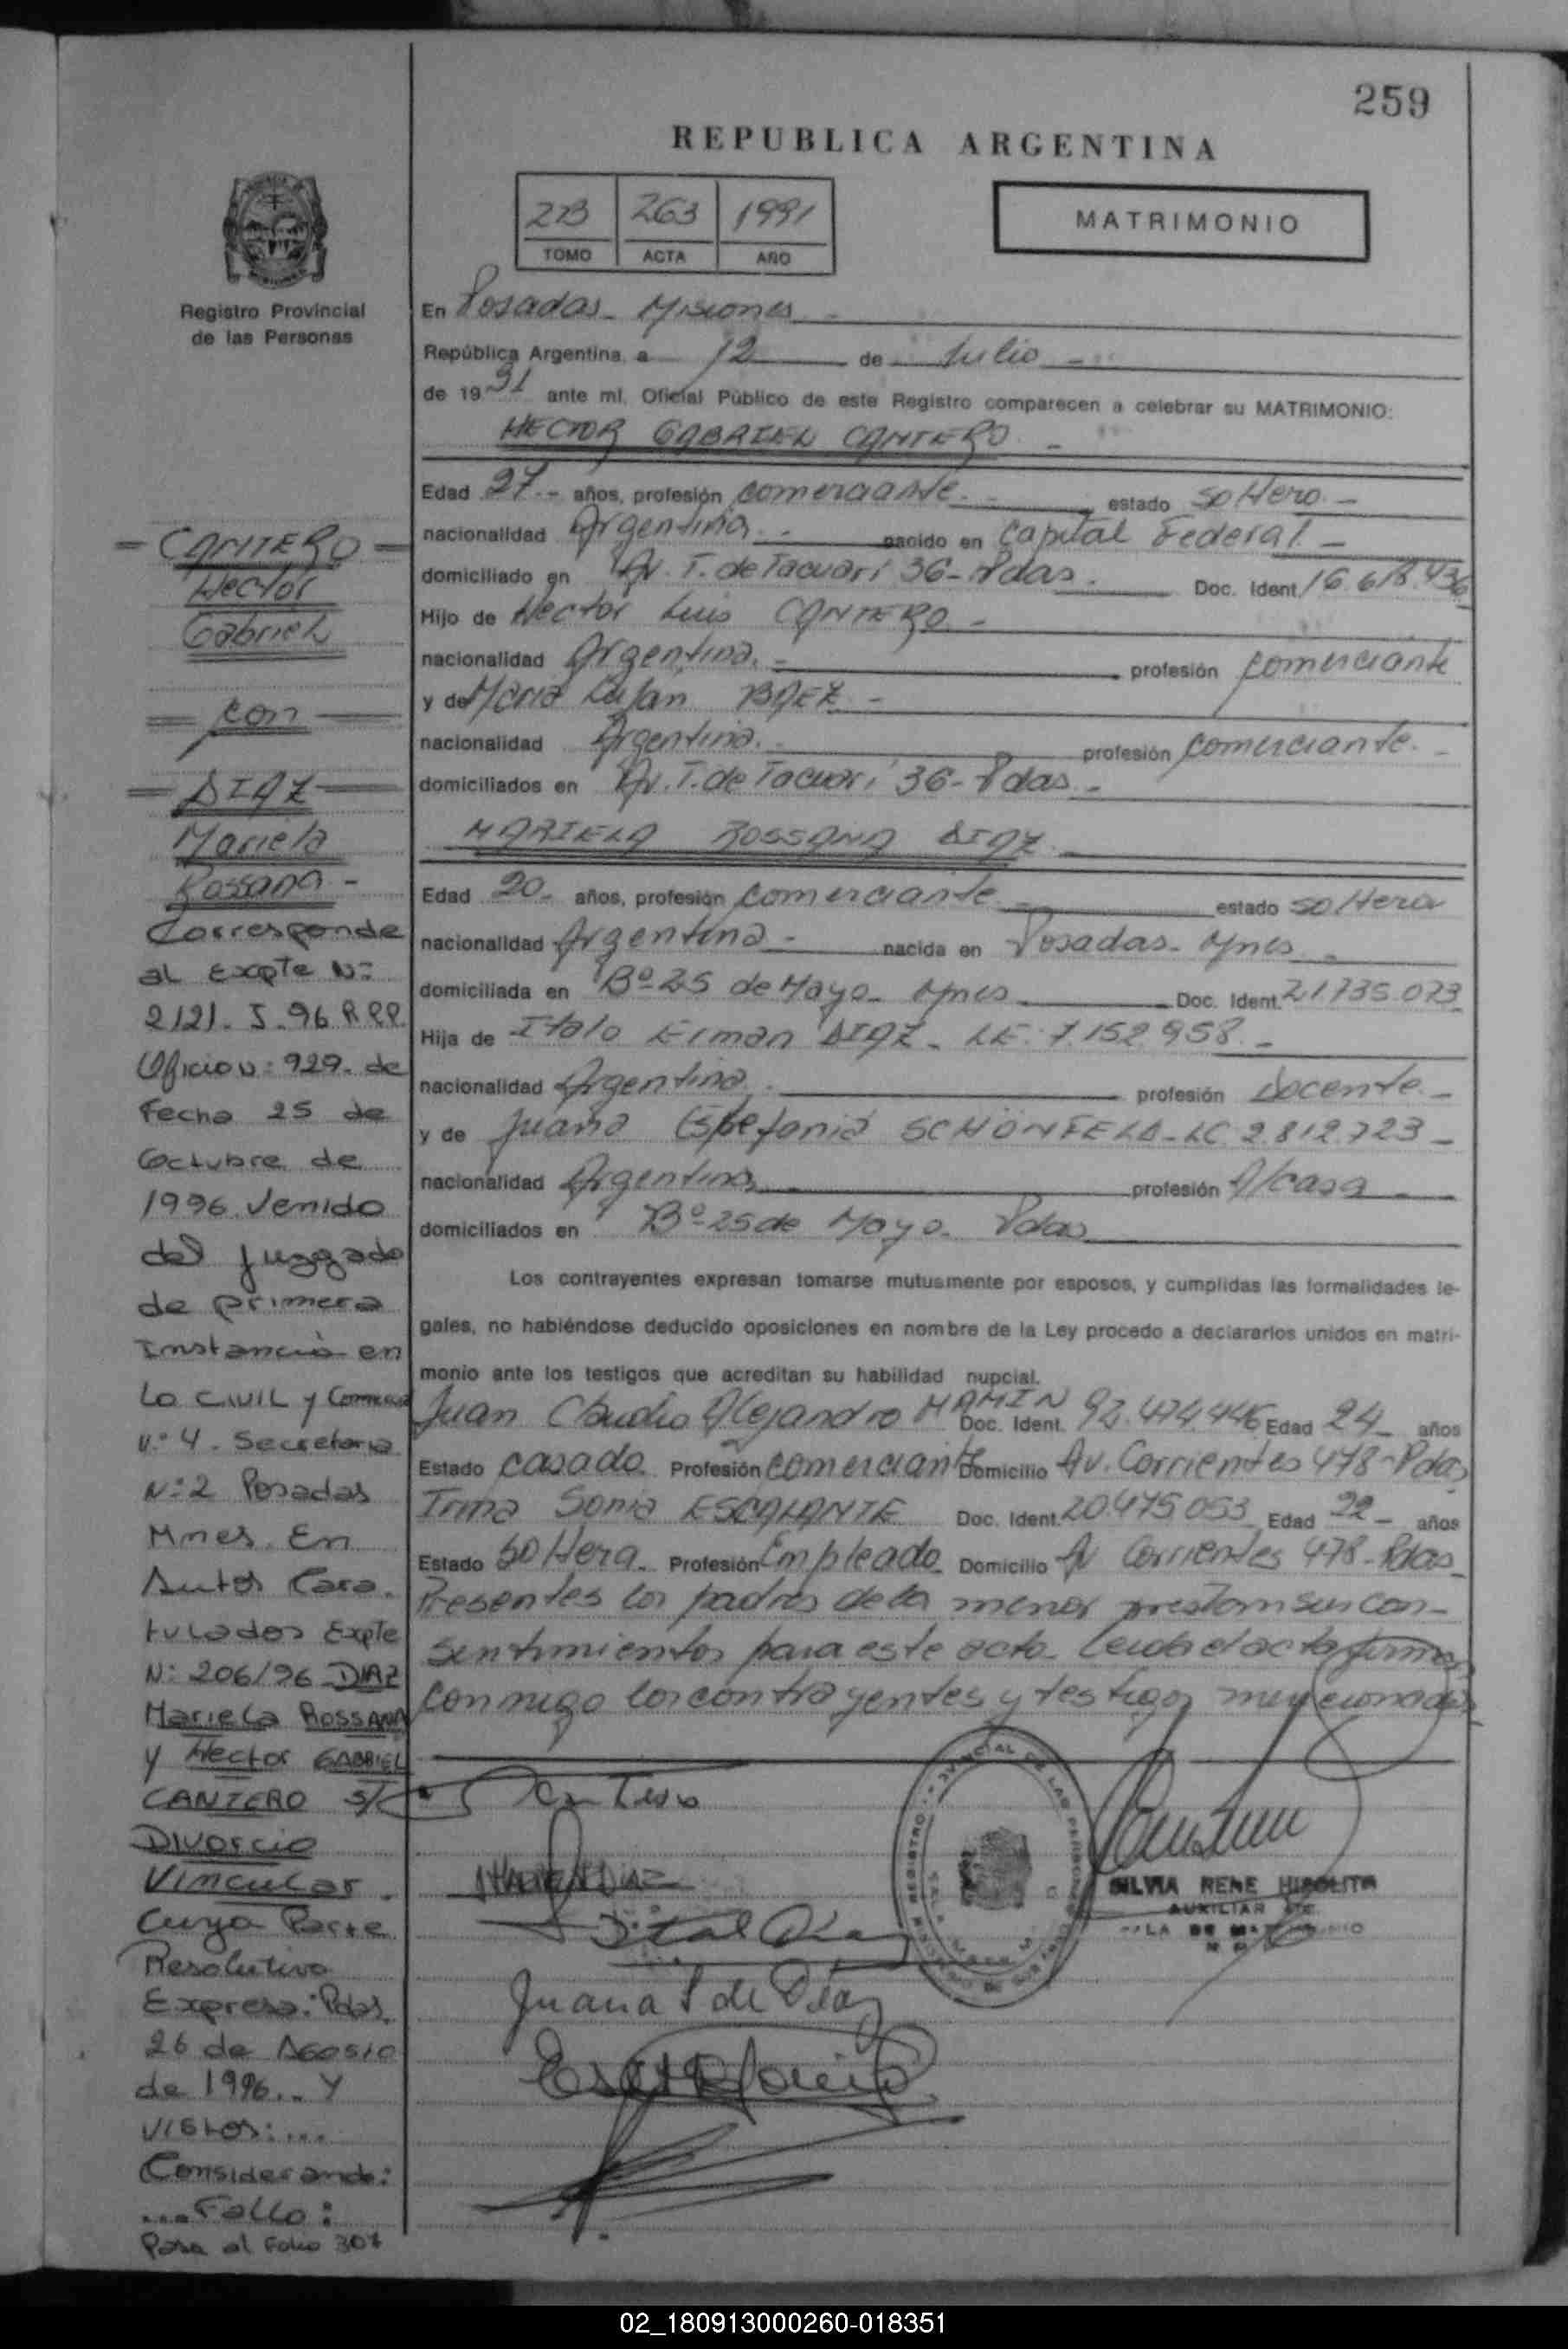 259
REPUBLICA ARGENTINA
2B 263 1991
TOMO ACTA AÑO
MATRIMONIO
Registro Provincial
de las Personas
En Posadas - Misiones -
República Argentina, a 12 de Julio -
de 1991 ante mi, Oficial Público de este Registro comparecen a celebrar su MATRIMONIO:
HECTOR GABRIEL CANTERO -
Edad 27.- años, profesión comerciante. - estado soltero. -
nacionalidad Argentina. - nacido en Capital Federal. -
domiciliado en Av. T. de Tacuari 36 - Pdas. Doc. Ident. 16.618.436
Hijo de Hector Luis CANTERO. -
nacionalidad Argentina. - profesión comerciante
y de Maria Luján BAEZ. -
nacionalidad Argentina. - profesión comerciante. -
domiciliados en Av. T. de Tacuari 36 - Pdas. -
MARIELA ROSSANA DIAZ. -
Edad 20.- años, profesión comerciante. - estado soltera
nacionalidad Argentina - nacida en Posadas - Mnes. -
domiciliada en Bº 25 de Mayo - Mnes. Doc. Ident. 21.735.073
Hija de Italo Erman DIAZ - LE: 7.152.958. -
nacionalidad Argentina. profesión Docente. -
y de Juana Estefania SCHONFELD - LC 2.812.723 -
nacionalidad Argentina. - profesión A/casa -
domiciliados en Bº 25 de Mayo - Pdas
Los contrayentes expresan tomarse mutuamente por esposos, y cumplidas las formalidades le-
gales, no habiéndose deducido oposiciones en nombre de la Ley procedo a declararlos unidos en matri-
monio ante los testigos que acreditan su habilidad nupcial.
Juan Claudio Alejandro MAMIN Doc. Ident. 92.474.446 Edad 24 - años
Estado casado. Profesión comerciante Domicilio Av. Corrientes 478 - Pdas
Irma Sonia ESCALANTE Doc. Ident. 20.475.053 Edad 22 - años
Estado soltera. Profesión Empleado. Domicilio Av Corrientes 478 - Pdas
Presentes los padres de la menor prestan sus con-
sentimientos para este acto. Leida el acta firman
conmigo los contrayentes y testigos mencionados
= CANTERO =
Hector
Gabriel
= con =
= DIAZ =
Mariela
Rossana -
Corresponde
al Expte N:
2121 - I - 96 R.P.P.
Oficio N: 929. de
Fecha 25 de
Octubre de
1996. Venido
del Juzgado
de primera
Instancia en
Lo CIVIL y Comercial
N:º 4. Secretaria
N: 2 Posadas
Mnes. En
Autos Cara.
tulados Expte
N: 206/96 DIAZ
Mariela ROSSANA
y Hector GABRIEL
CANTERO S/
DIVORCIO
Vincular.
Cuya Parte
Resolutiva
Expresa: Pdas.
26 de AGOSTO
de 1996... Y
VISTOS: ...
Considerando:
... Fallo:
Pasa al Folio 307
Cantero
MARIELA DIAZ
Ital Diaz
Juana S de Diaz
SILVIA RENE HIPOLITA
AUXILIAR
02_180913000260-018351